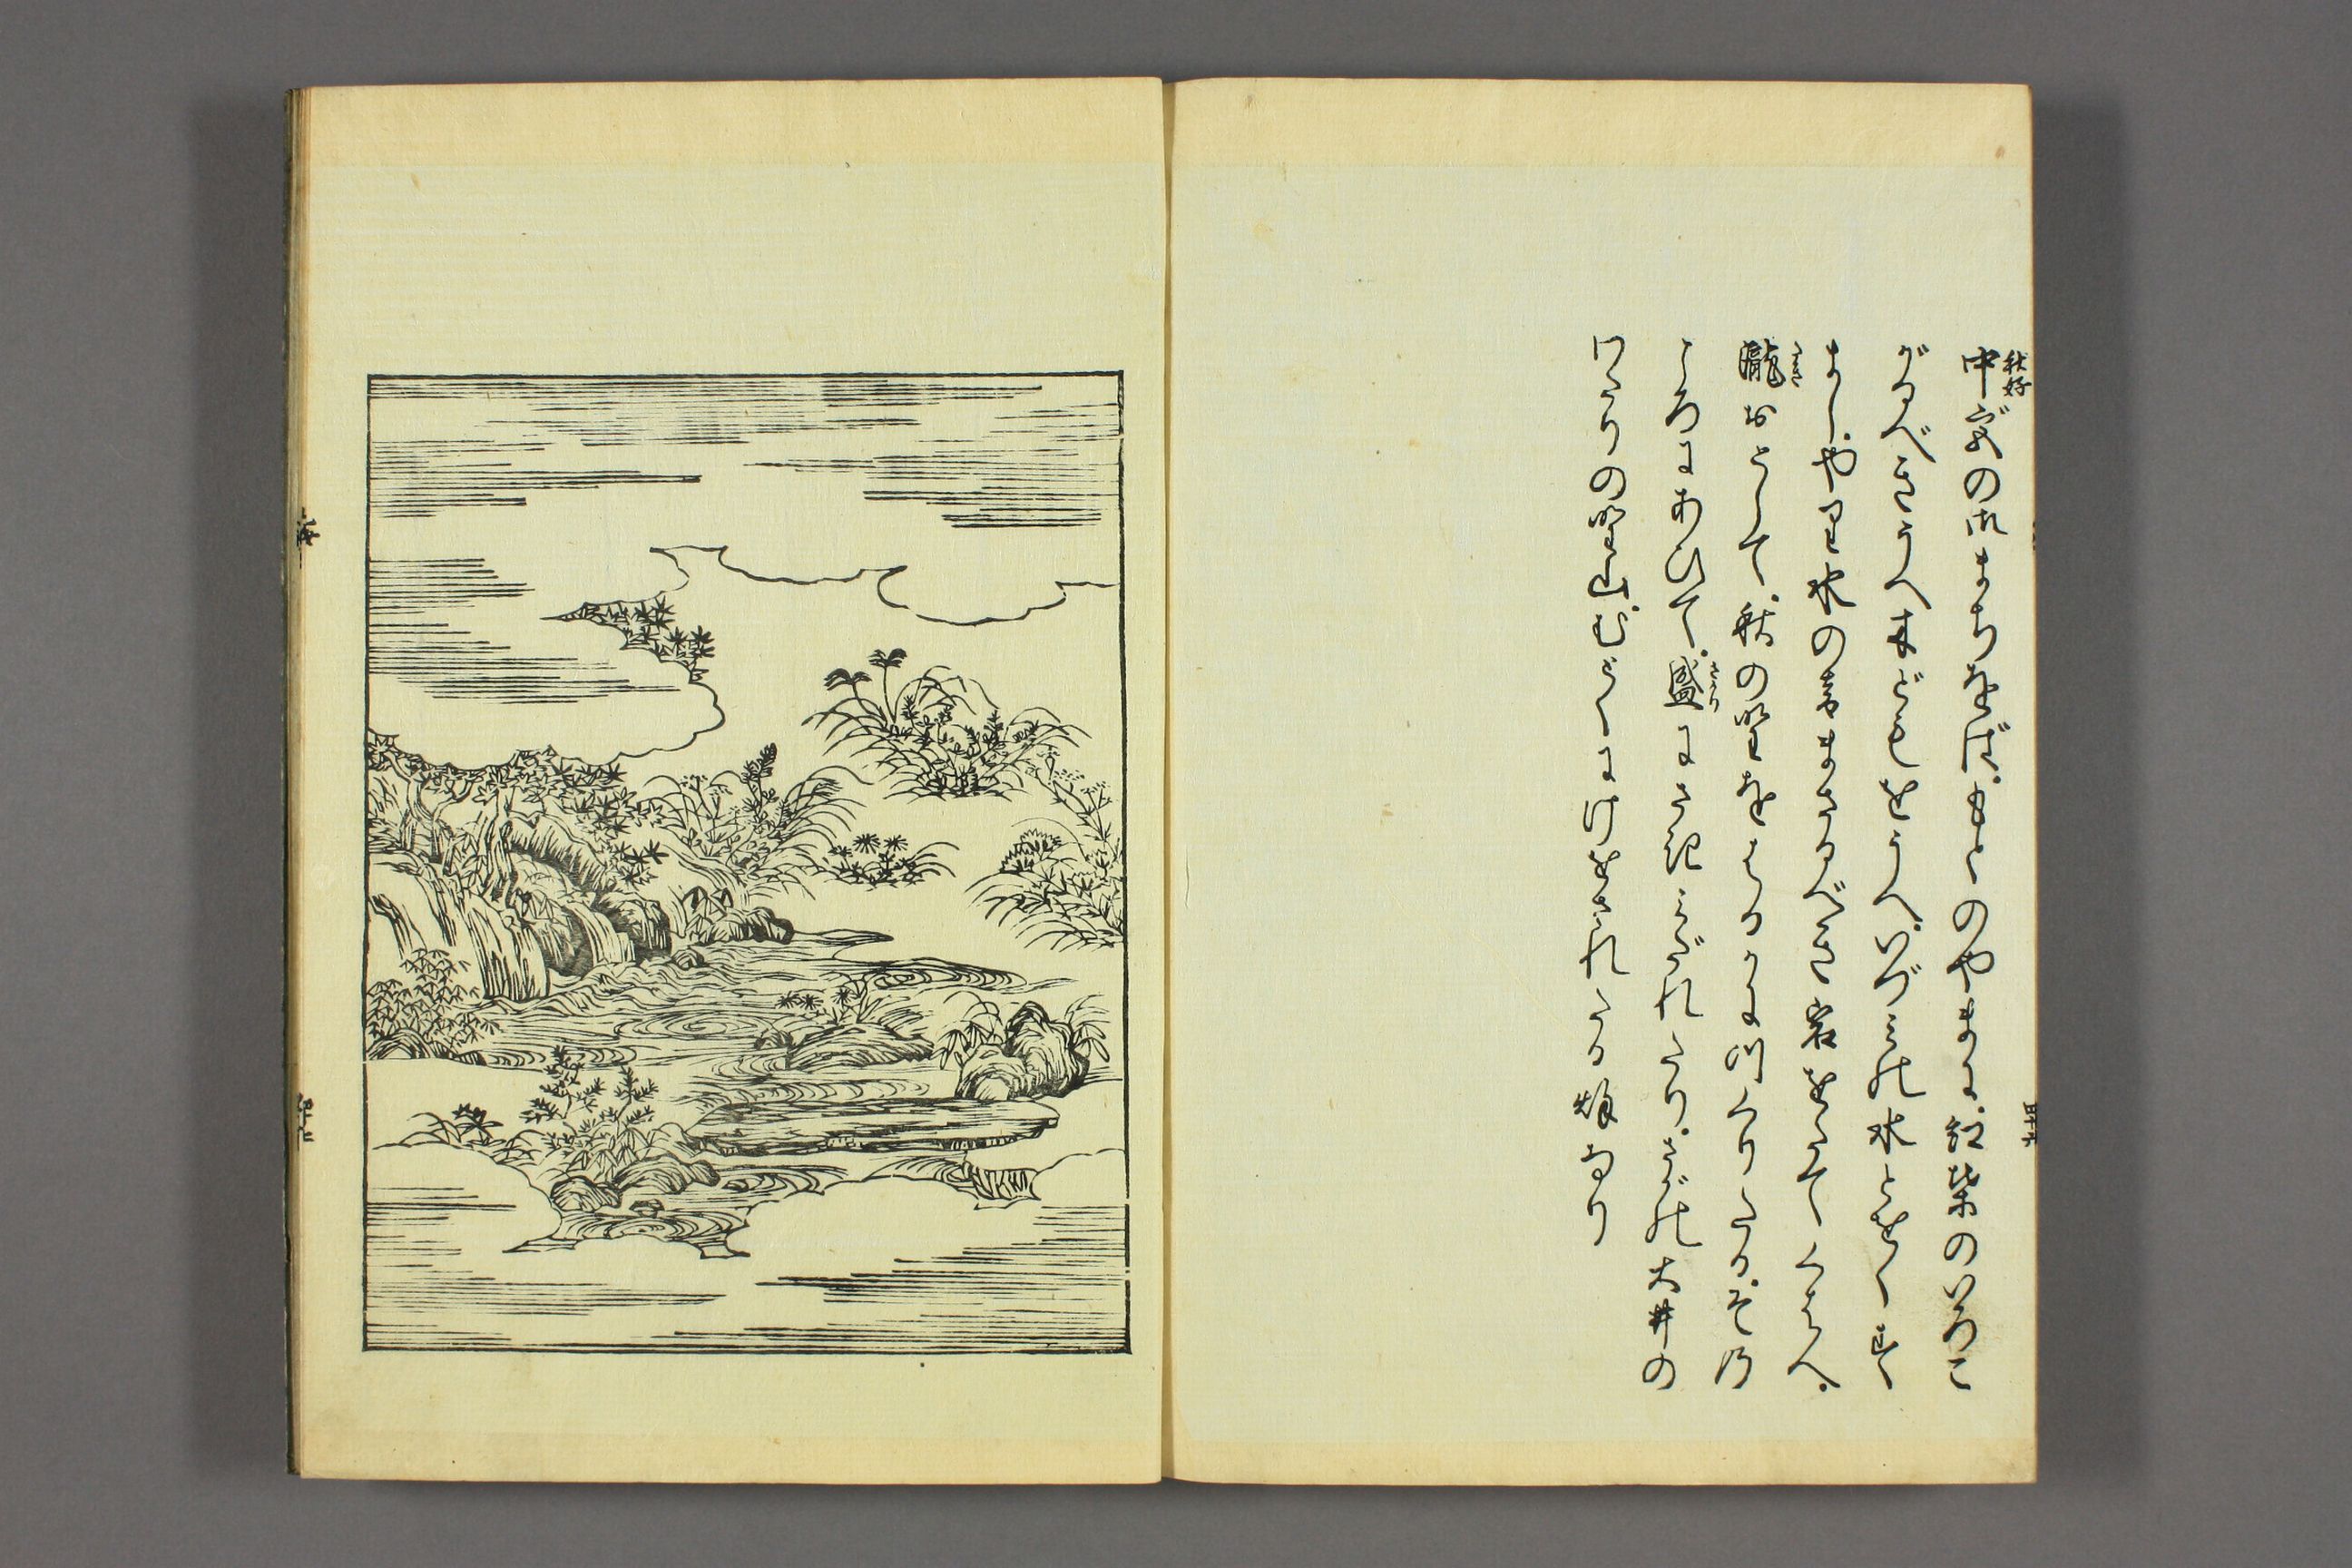 秋好
中宮の御まちをば.もとのやまに.紅葉のいろこ
がるべきうへ木どもをうへ.いづみの水とをくす
まし.やり水の音まさるべき岩をたてくはへ.
たき
瀧おとして.秋の野をはるかにつくりたる.その
さかり
ころにあひて.盛にさきみだれたり.さがの大井の
わたりの野山.むとくにけをされたる秋なり